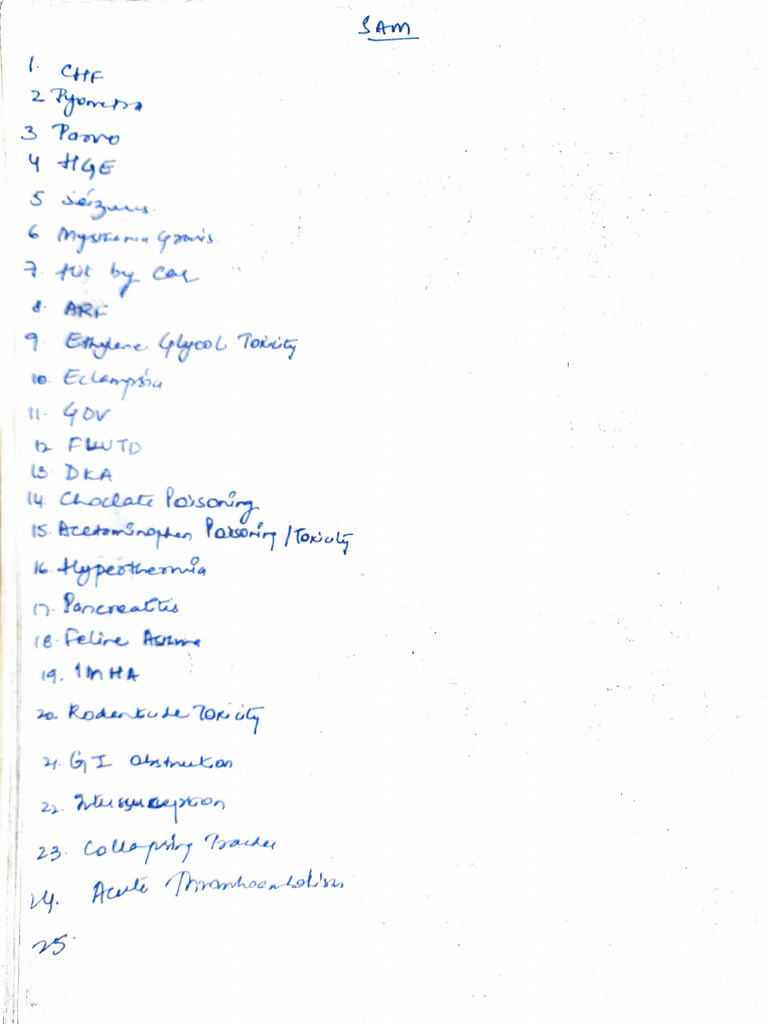 SAM
1. CHF
2 Pyometra
3 Parvo
4 HGE
5 Seizures.
6 Mysthenia Gravis
7. Hit by Car
8. ARF
9. Ethylene Glycol Toxicity
10. Eclampsia
11. GDV
12 FLUTD
13. DKA
14. Choclate Poisoning
15. Acetominophen Poisoning / Toxicity
16. Hyperthermia
17. Pancreatitis
18. Feline Asthma
19. IMHA
20. Rodenticide Toxicity
21. GI Obstruction
22. Intussusception
23. Collapsing Trachea
24. Acute Thromboembolism
25.